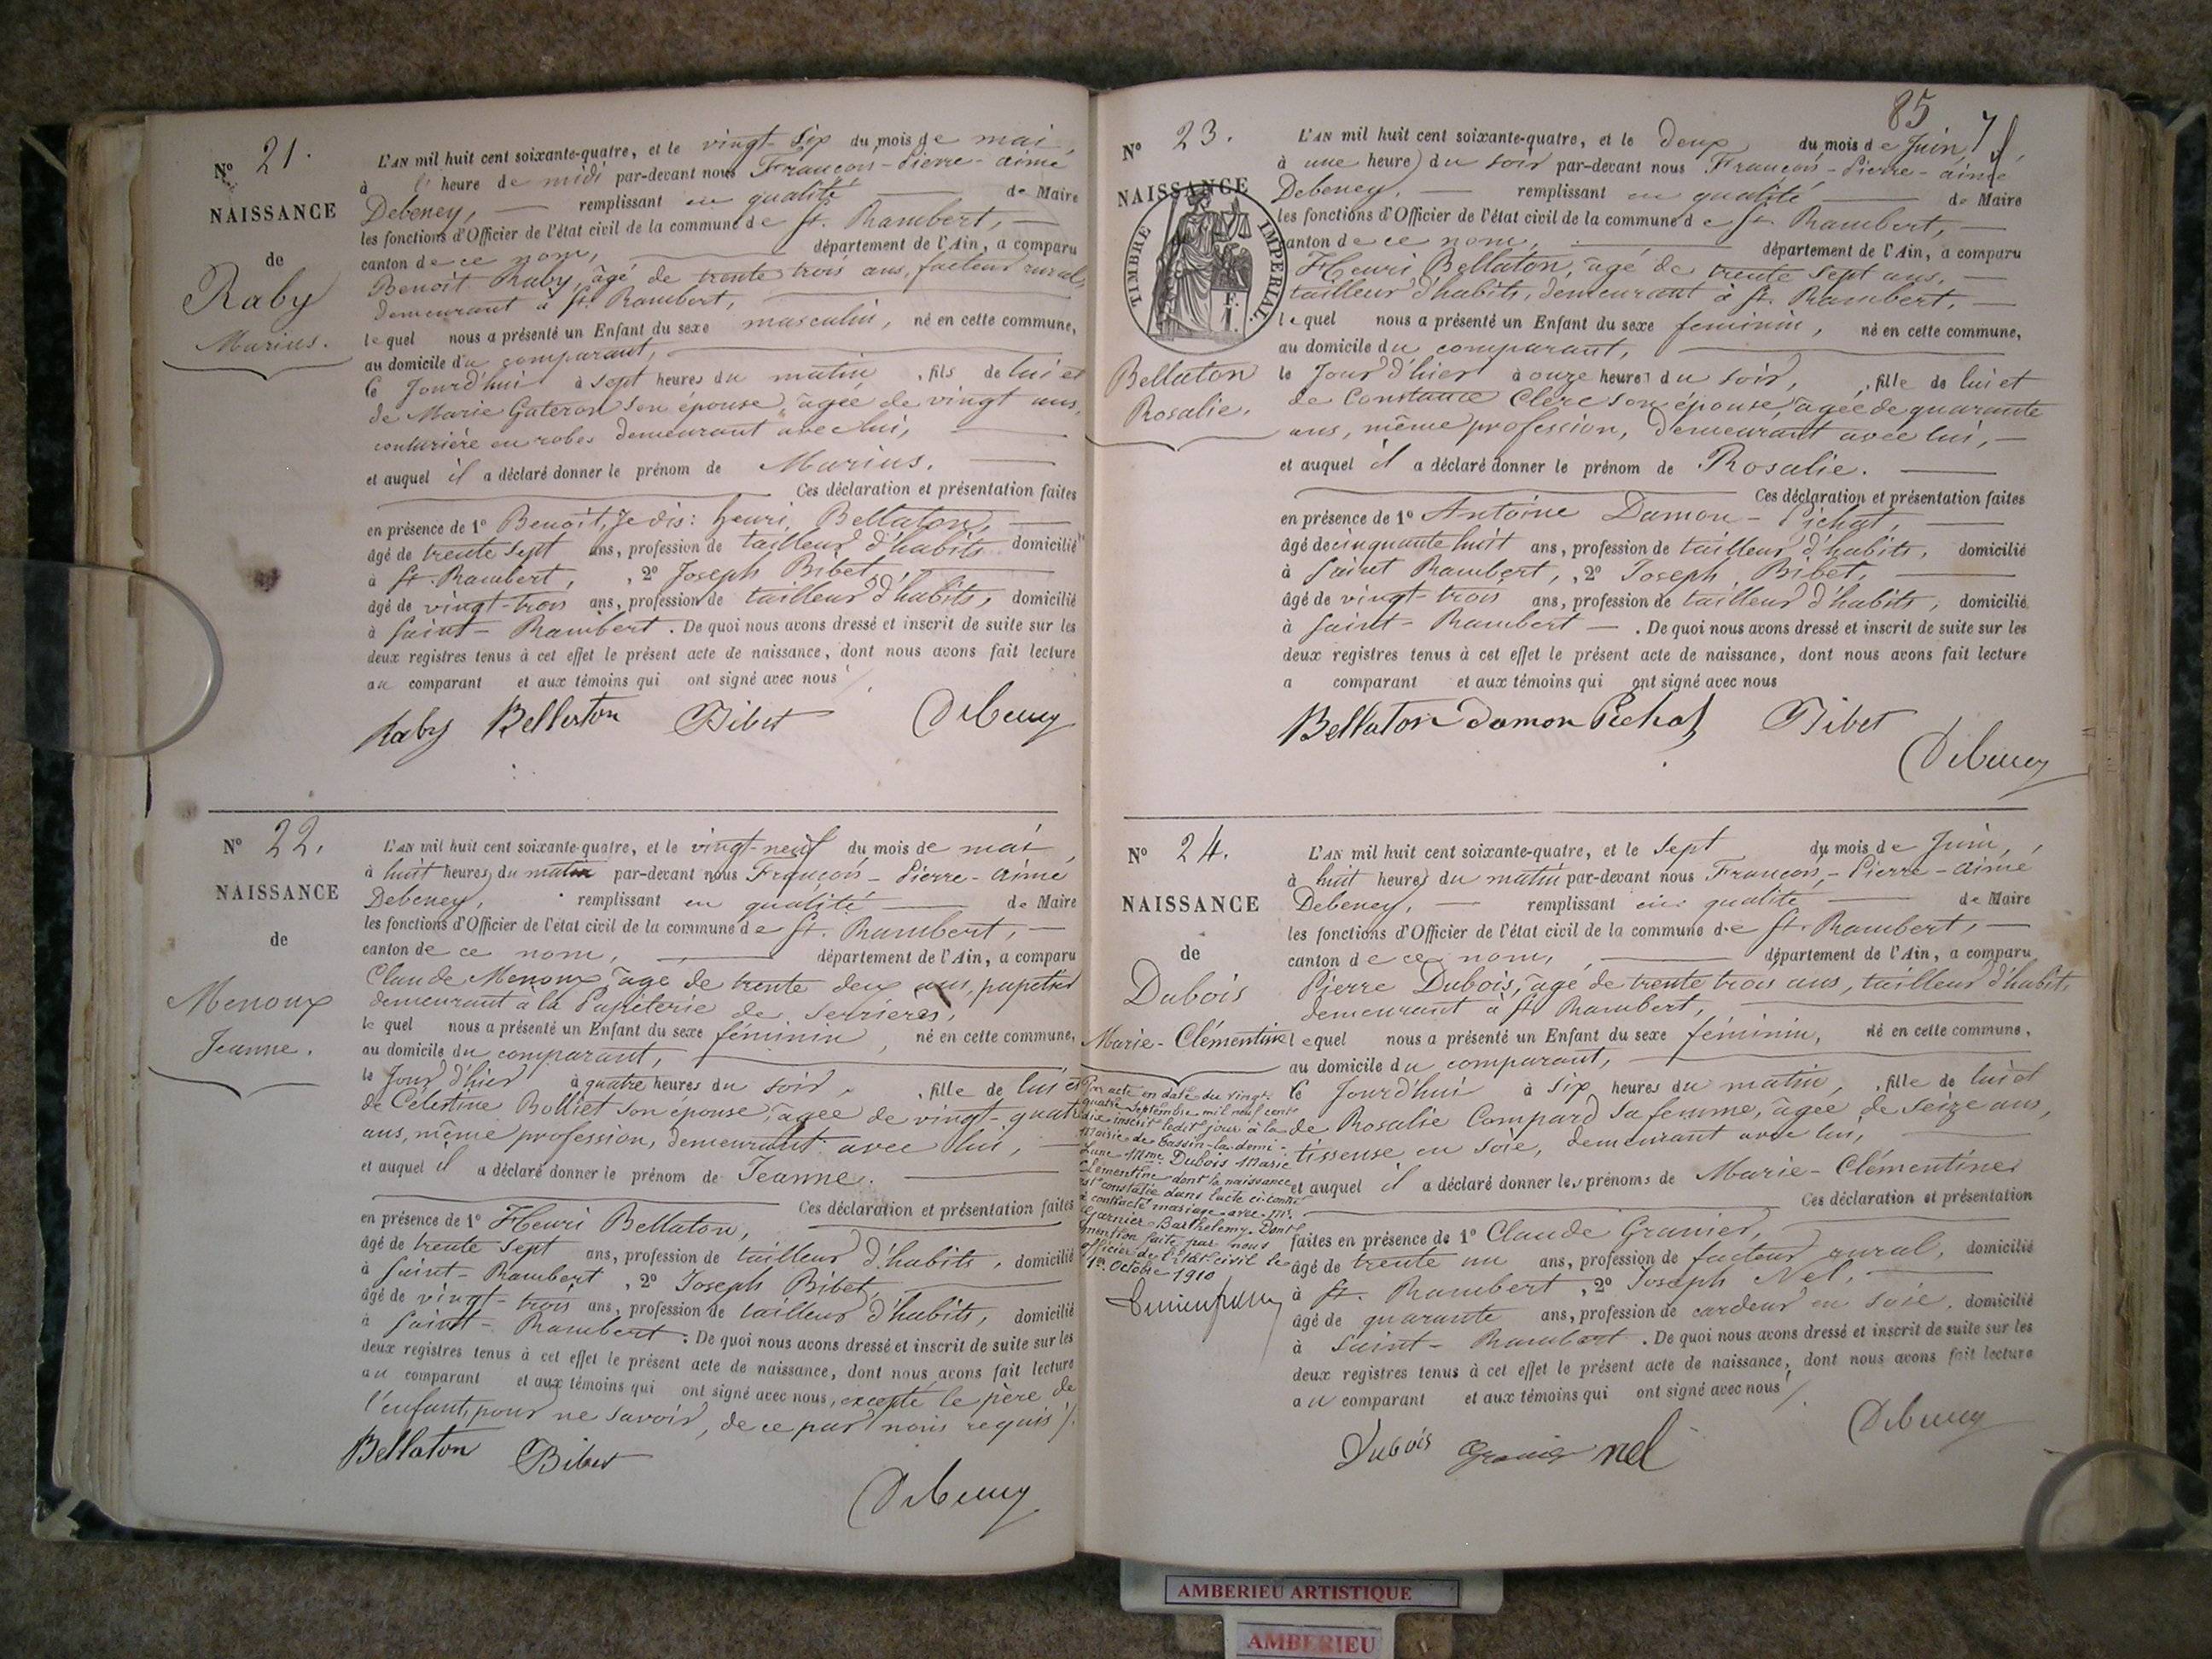 N° 21.
NAISSANCE
de
Raby
Marius.
L'AN mil huit cent soixante-quatre, et le vingt-six du mois de mai,
à l' heure de midi par-devant nous François-Pierre-aimé
Debeney, remplissant en qualité de Maire
les fonctions d'Officier de l'état civil de la commune de St. Rambert,
canton de ce nom, département de l'Ain, a comparu
Benoit Raby, âgé de trente trois ans, facteur rural,
demeurant à St. Rambert,
lequel nous a présenté un Enfant du sexe masculin, né en cette commune,
au domicile du comparant,
le Jourd'hui à sept heures du matin, fils de lui et
de Marie Gateron son épouse, âgée de vingt ans,
couturière en robes demeurant avec lui,
et auquel il a déclaré donner le prénom de Marius.
Ces déclaration et présentation faites
en présence de 1° Benoit, Je dis: henri, Bellaton,
âgé de trente sept ans, profession de tailleur d'habits domicilié
à St. Rambert, , 2° Joseph Bibet,
âgé de vingt-trois ans, profession de tailleur d'habits, domicilié
à Saint-Rambert. De quoi nous avons dressé et inscrit de suite sur les
deux registres tenus à cet effet le présent acte de naissance, dont nous avons fait lecture
au comparant et aux témoins qui ont signé avec nous
Raby Bellaton Bibet Debeney
N° 22.
NAISSANCE
de
Menoux
Jeanne.
L'AN mil huit cent soixante-quatre, et le vingt-neuf du mois de mai,
à huit heures du matin par-devant nous François-Pierre-Aimé
Debeney, remplissant en qualité de Maire
les fonctions d'Officier de l'état civil de la commune de St. Rambert,
canton de ce nom, département de l'Ain, a comparu
Claude Menoux, âgé de trente deux ans, papetier
demeurant à la Papeterie de Serrières,
lequel nous a présenté un Enfant du sexe féminin, né en cette commune,
au domicile du comparant,
le Jour d'hier à quatre heures du soir, , fille de lui et
de Célestine Bolliet son épouse, âgée de vingt-quatre
ans, même profession, demeurant avec lui,
et auquel il a déclaré donner le prénom de Jeanne.
Ces déclaration et présentation faites
en présence de 1° Henri Bellaton,
âgé de trente sept ans, profession de tailleur d'habits, domicilié
à Saint-Rambert, 2° Joseph Bibet,
âgé de vingt-trois ans, profession de tailleur d'habits, domicilié
à Saint-Rambert. De quoi nous avons dressé et inscrit de suite sur les
deux registres tenus à cet effet le présent acte de naissance, dont nous avons fait lecture
au comparant et aux témoins qui ont signé avec nous, excepté le père de
l'enfant, pour ne savoir, de ce par nous requis
Bellaton Bibet
Debeney
85
N° 23.
NAISSANCE
TIMBRE IMPERIAL
Bellaton
Rosalie.
L'AN mil huit cent soixante-quatre, et le deux du mois de Juin,
à une heure du soir par-devant nous François-Pierre-aimé
Debeney, remplissant en qualité de Maire
les fonctions d'Officier de l'état civil de la commune de St. Rambert,
canton de ce nom, département de l'Ain, a comparu
Henri Bellaton, âgé de trente sept ans,
tailleur d'habits, demeurant à St. Rambert,
lequel nous a présenté un Enfant du sexe féminin, né en cette commune,
au domicile du comparant,
le Jour d'hier à onze heures du soir, , fille de lui et
de Constance Clerc son épouse, âgée de quarante
ans, même profession, demeurant avec lui,
et auquel il a déclaré donner le prénom de Rosalie.
Ces déclaration et présentation faites
en présence de 1° Antoine Damon-Pichat,
âgé de cinquante huit ans, profession de tailleur d'habits, domicilié
à Saint Rambert, , 2° Joseph Bibet,
âgé de vingt-trois ans, profession de tailleur d'habits, domicilié
à Saint-Rambert. De quoi nous avons dressé et inscrit de suite sur les
deux registres tenus à cet effet le présent acte de naissance, dont nous avons fait lecture
a comparant et aux témoins qui ont signé avec nous
Bellaton Damon Pichat Bibet
Debeney
N° 24.
NAISSANCE
de
Dubois
Marie-Clémentine
Par acte en date du vingt-
quatre Septembre mil neuf cent
dix inscrit ledit jour à la
Mairie de Tassin-la-demi-
Lune Mme Dubois Marie
Clémentine dont la naissance
est constatée dans l'acte ci-contre
a contracté mariage avec Mr.
Garnier Barthélemy. Dont
mention faite par nous
officier de l'état-civil le
1er Octobre 1910
L'AN mil huit cent soixante-quatre, et le Sept du mois de Juin,
à huit heures du matin par-devant nous François-Pierre-aimé
Debeney, remplissant en qualité de Maire
les fonctions d'Officier de l'état civil de la commune de St. Rambert,
canton de ce nom, département de l'Ain, a comparu
Pierre Dubois, âgé de trente trois ans, tailleur d'habits
demeurant à St Rambert,
lequel nous a présenté un Enfant du sexe féminin, né en cette commune,
au domicile du comparant,
le Jourd'hui à six heures du matin, , fille de lui et
de Rosalie Compard sa femme, âgée de seize ans,
tisseuse en soie, demeurant avec lui,
et auquel il a déclaré donner les prénoms de Marie-Clémentine
Ces déclaration et présentation
faites en présence de 1° Claude Granier,
âgé de trente un ans, profession de facteur rural, domicilié
à St. Rambert, 2° Joseph Nel,
âgé de quarante ans, profession de cardeur en soie, domicilié
à Saint-Rambert. De quoi nous avons dressé et inscrit de suite sur les
deux registres tenus à cet effet le présent acte de naissance, dont nous avons fait lecture
au comparant et aux témoins qui ont signé avec nous
Dubois Granier nel Debeney
AMBERIEU ARTISTIQUE
AMBERIEU